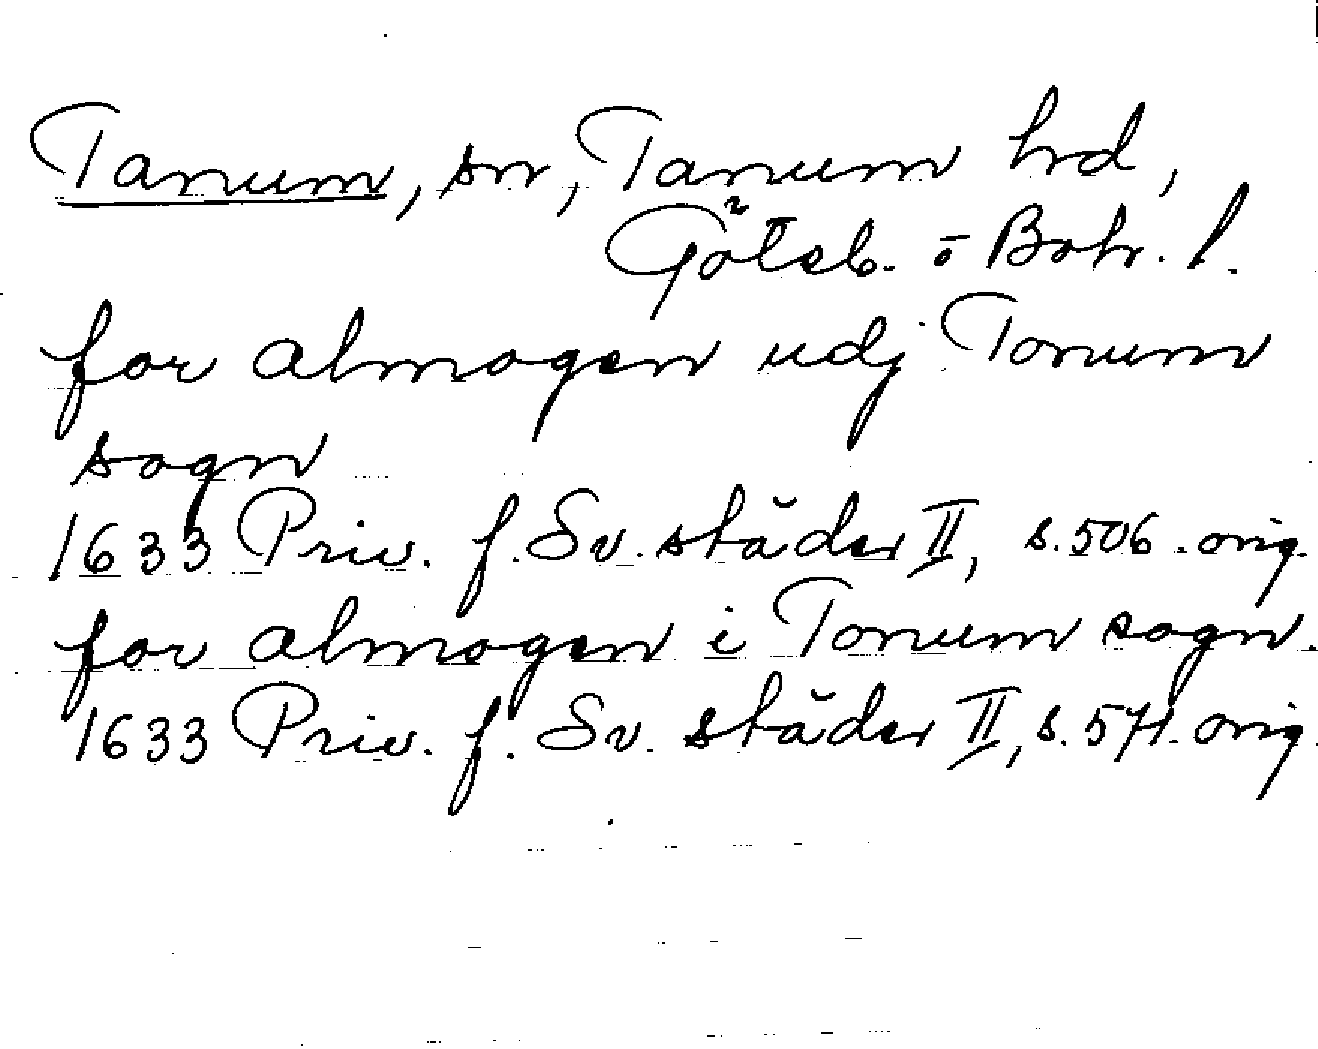 Tanum, sn, Tanum hrd,
Göteb. o Boh. l.
for almogen udj Tonum
sogn
1633 Priv. f. Sv. städer II, s. 506. orig.
for almogen i Tonum sogn.
1633 Priv. f. Sv. städer II, s. 571. orig.